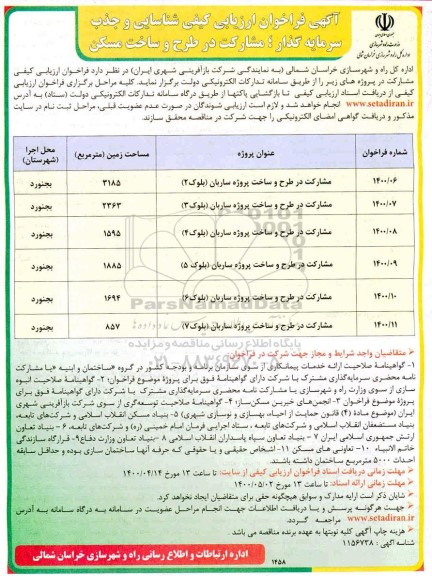 آگهی فراخوان ارزیابی کیفی شناسایی و جذب
سرمایه گذار ؛ مشارکت در طرح و ساخت مسکن
اداره کل راه و شهرسازی خراسان شمالی (به نمایندگی شرکت بازآفرینی شهری ایران) در نظر دارد فراخوان ارزیابی کیفی
مشارکت در پروژه های زیر را از طریق سامانه تدارکات الکترونیکی دولت برگزار نماید. کلیه مراحل برگزاری فراخوان ارزیابی
کیفی از دریافت اسناد ارزیابی کیفی تا بازگشایی پاکتها از طریق درگاه سامانه تدارکات الکترونیکی دولت (ستاد) به آدرس
www.setadiran.ir انجام خواهد شد و لازم است ارزیابی شوندگان در صورت عدم عضویت قبلی، مراحل ثبت نام در سایت
مذکور و دریافت گواهی امضای الکترونیکی را جهت شرکت در مناقصه محقق سازند.
شماره فراخوان عنوان پروژه مساحت زمین (مترمربع) محل اجرا (شهرستان)
۱۴۰۰/۰۶ مشارکت در طرح و ساخت پروژه ساربان (بلوک۲) ۳۱۸۵ بجنورد
۱۴۰۰/۰۷ مشارکت در طرح و ساخت پروژه ساربان (بلوک۳) ۲۳۶۳ بجنورد
۱۴۰۰/۰۸ مشارکت در طرح و ساخت پروژه ساربان (بلوک۴) ۱۵۹۵ بجنورد
۱۴۰۰/۰۹ مشارکت در طرح و ساخت پروژه ساربان (بلوک ۵) ۱۸۸۵ بجنورد
۱۴۰۰/۱۰ مشارکت در طرح و ساخت پروژه ساربان (بلوک۶) ۱۶۹۴ بجنورد
۱۴۰۰/۱۱ مشارکت در طرح و ساخت پروژه ساربان (بلوک۷) ۸۵۷ بجنورد
ParsNamadData
پایگاه اطلاع رسانی مناقصه و مزایده
متقاضیان واجد شرایط و مجاز جهت شرکت در فراخوان:
۱- گواهینامهٔ صلاحیت ارائه خدمات پیمانکاری از سوی سازمان برنامه و بودجه کشور در گروه «ساختمان و ابنیه »یا مشارکت
نامه محضری سرمایه‌گذاری مشترک با شرکت دارای گواهینامهٔ فوق برای پروژهٔ موضوع فراخوان؛ ۲- گواهینامهٔ صلاحیت انبوه
سازی از سوی وزارت راه و شهرسازی یا مشارکت نامه محضری سرمایه‌گذاری مشترک با شرکت دارای گواهینامهٔ فوق برای
پروژهٔ موضوع فراخوان ۳- انجمن‌های خیرین مسکن‌ساز؛ ۴- گواهینامهٔ صلاحیت توسعه‌گری از سوی شرکت بازآفرینی شهری
ایران (موضوع مادهٔ (۴) قانون حمایت از احیاء، بهسازی و نوسازی شهری) ۵- بنیاد مسکن انقلاب اسلامی و شرکت‌های تابعه،
بنیاد مستضعفان انقلاب اسلامی و شرکت‌های تابعه ، ستاد اجرایی فرمان امام خمینی (ره) و شرکت‌های تابعه، ۶- بنیاد تعاون
ارتش جمهوری اسلامی ایران ۷ - بنیاد تعاون سپاه پاسداران انقلاب اسلامی ۸ -بنیاد تعاون وزارت دفاع۹- قرارگاه سازندگی
خاتم الانبیاء ۱۰- تعاونی های مسکن ۱۱- اشخاص حقیقی و یا حقوقی که حرفه آنها ساختمان سازی بوده و حداقل سابقه
احداث ۵۰۰۰ مترمربع ساختمان داشته باشند.
مهلت زمانی دریافت اسناد فراخوان ارزیابی کیفی از سایت: تا ساعت ۱۳ مورخ ۱۴۰۰/۰۴/۱۴
مهلت زمانی ارائه اسناد: تا ساعت ۱۳ مورخ ۱۴۰۰/۰۵/۰۲
شایان ذکر است ارایه مدارک و سوابق هیچگونه حقی برای متقاضیان ایجاد نخواهد کرد.
جهت هرگونه پرسش و یا دریافت اطلاعات جهت انجام مراحل عضویت در سامانه به درگاه سامانه به آدرس
www.setadiran.ir مراجعه گردد.
هزینه چاپ آگهی کلیه نوبتها به عهده برنده مناقصه می باشد .
شناسه آگهی : ۱۱۵۶۷۳۸
اداره ارتباطات و اطلاع رسانی راه و شهرسازی خراسان شمالی
۱۴۵۸